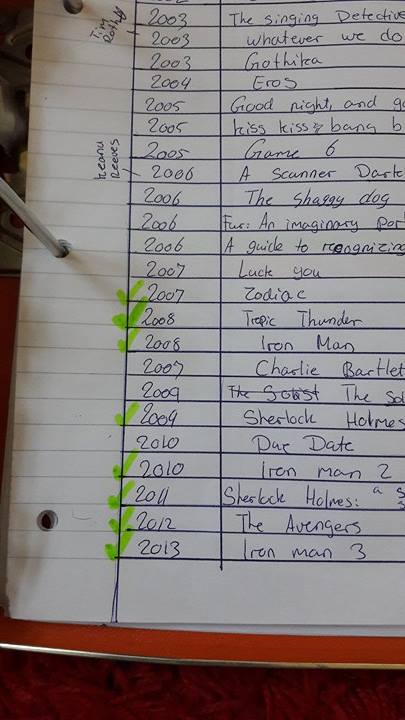 2003 The singing Detective
Tim Roth 2003 whatever we do
2003 Gothika
2004 Eros
2005 Good night, and go
2005 kiss kiss bang b
2005 Game 6
Keanu Reeves 2006 A Scanner Dark
2006 The shaggy dog
2006 Fur: An imaginary por
2006 A guide to recognizing
2007 Luck you
2007 Zodiac
2008 Tropic Thunder
2008 Iron Man
2007 Charlie Bartlet
2009 The Solist The Sol
2009 Sherlock Holmes
2010 Due Date
2010 Iron man 2
2011 Sherlock Holmes: a s
2012 The Avengers
2013 Iron man 3